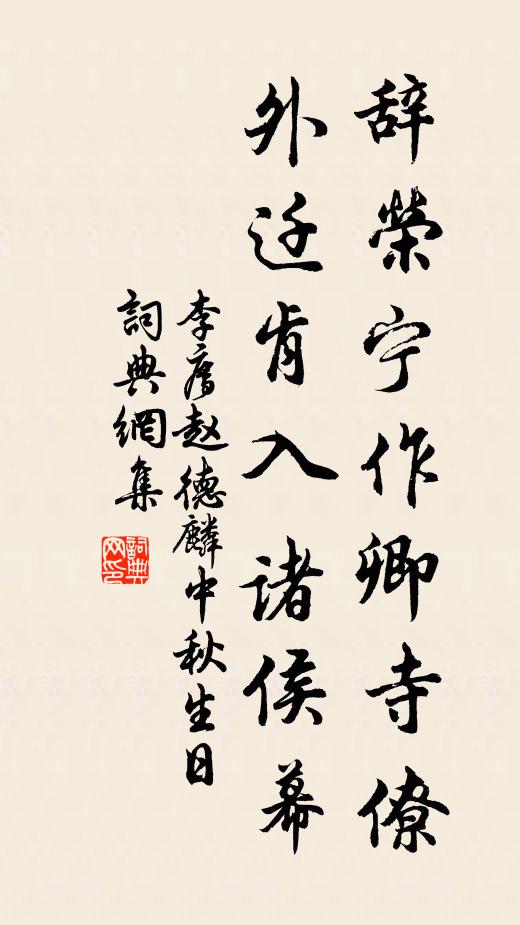 辞榮宁作卿寺僚
外迁肯入诸侯幕
李廌赵德麟中秋生日
詞典網集
詞典
网印